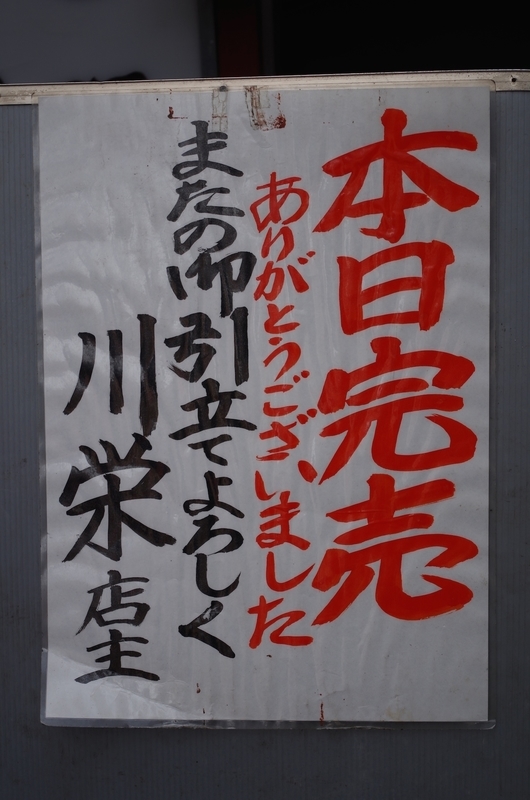 本日完売
ありがとうございました
またの御引立てよろしく
川栄店主